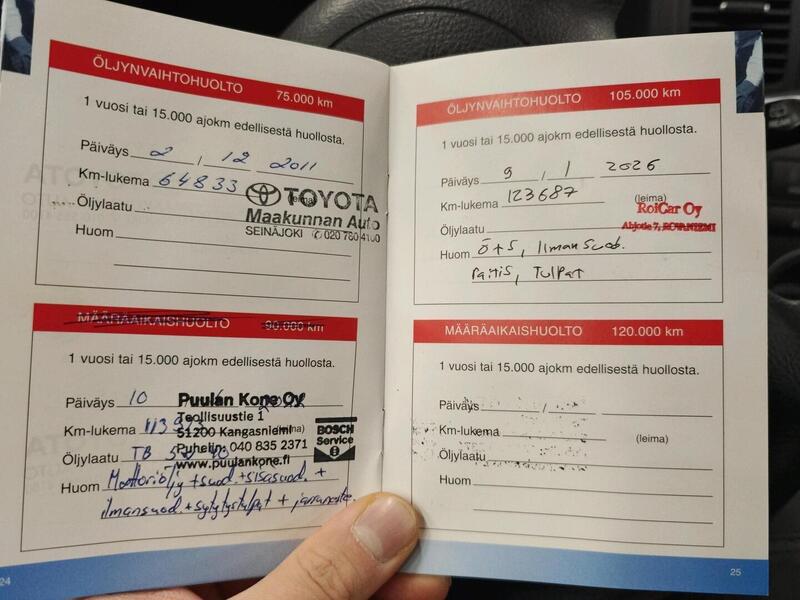 ÖLJYNVAIHTOHUOLTO 75.000 km
1 vuosi tai 15.000 ajokm edellisestä huollosta.
Päiväys 2 / 12 2011
Km-lukema 64833 (leima)
TOYOTA
Öljylaatu
Maakunnan Auto
SEINÄJOKI 020 780 4100
Huom
MÄÄRÄAIKAISHUOLTO 90.000 km
1 vuosi tai 15.000 ajokm edellisestä huollosta.
Päiväys 10
Puulan Kone Oy
Teollisuustie 1
Km-lukema (leima)
51200 Kangasniemi
BOSCH
Service
Öljylaatu TB
Puhelin: 040 835 2371
www.puulankone.fi
Huom Moottoriöljy + suod. + sisäsuod. +
ilmansuod. + sytytystulpat +
24
ÖLJYNVAIHTOHUOLTO 105.000 km
1 vuosi tai 15.000 ajokm edellisestä huollosta.
Päiväys 9 / 1 2026
Km-lukema 123687 (leima)
RoiCar Oy
Öljylaatu
Ahjotie 7, ROVANIEMI
Huom Ö+S, Ilmansuod.
raitis, Tulpat
MÄÄRÄAIKAISHUOLTO 120.000 km
1 vuosi tai 15.000 ajokm edellisestä huollosta.
Päiväys /
Km-lukema (leima)
Öljylaatu
Huom
25